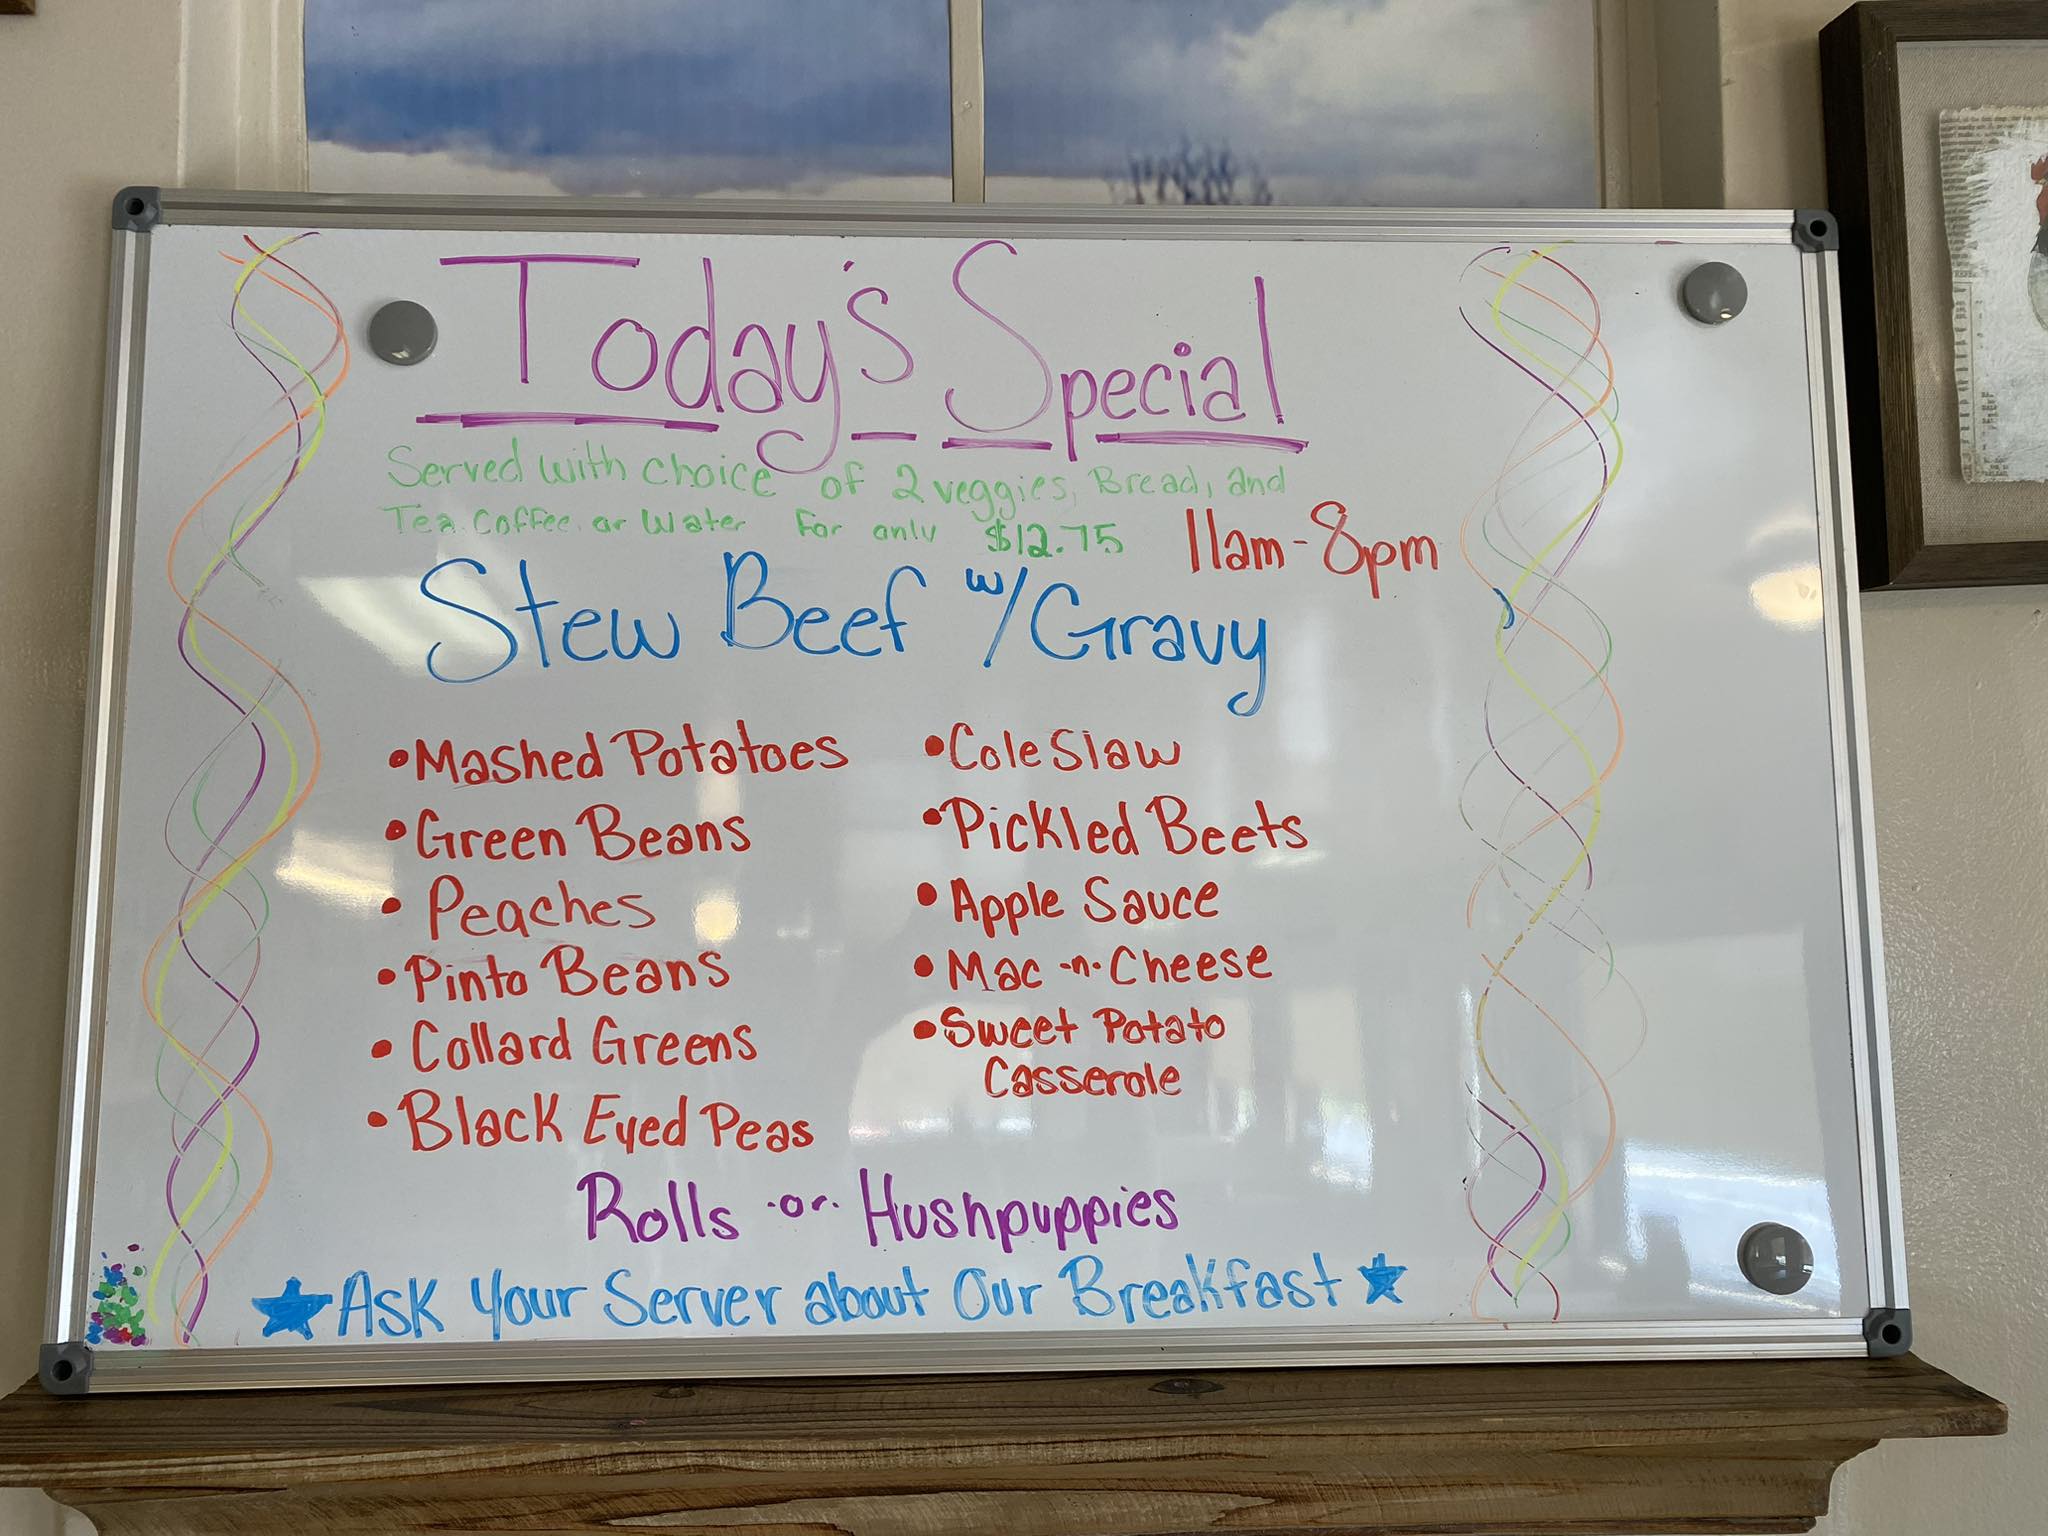 Today's Special
Served with choice of 2 veggies, Bread, and
Tea, Coffee, or Water For only $12.75
11am-8pm
Stew Beef w/Gravy
•Mashed Potatoes
•Green Beans
•Peaches
•Pinto Beans
•Collard Greens
•Black Eyed Peas
•Cole Slaw
•Pickled Beets
•Apple Sauce
•Mac -n- Cheese
•Sweet Potato
Casserole
Rolls -or- Hushpuppies
★Ask Your Server about Our Breakfast★